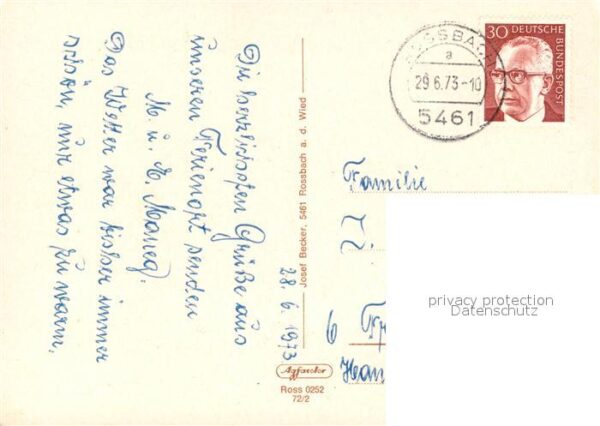 28.6.1973
Die herzlichsten Grüße aus
unserem Ferienort senden
M. u. E.
Das Wetter war bisher immer
schön, nur etwas zu warm.
Josef Becker, 5461 Rossbach a. d. Wied
Agfacolor
Ross 0252
72/2
ROSSBACH
a
29.6.73-10
5461
30
DEUTSCHE
BUNDESPOST
Familie
6
privacy protection
Datenschutz